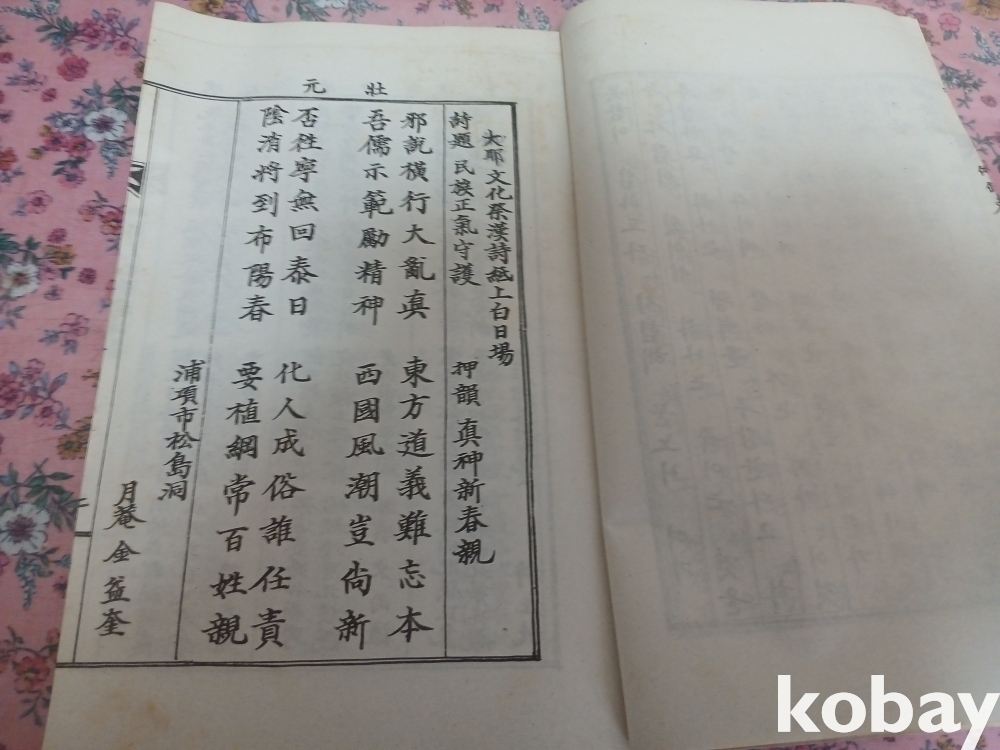 壯元
大耶文化祭漢詩紙上白日場
詩題 民族正氣守護 押韻 真神新春親
邪說橫行大亂真 東方道義難忘本
吾儒示範勵精神 西國風潮豈尚新
否往寧無回泰日 化人成俗誰任責
陰消將到布陽春 要植綱常百姓親
浦項市松島洞
月菴 金益奎
kobay